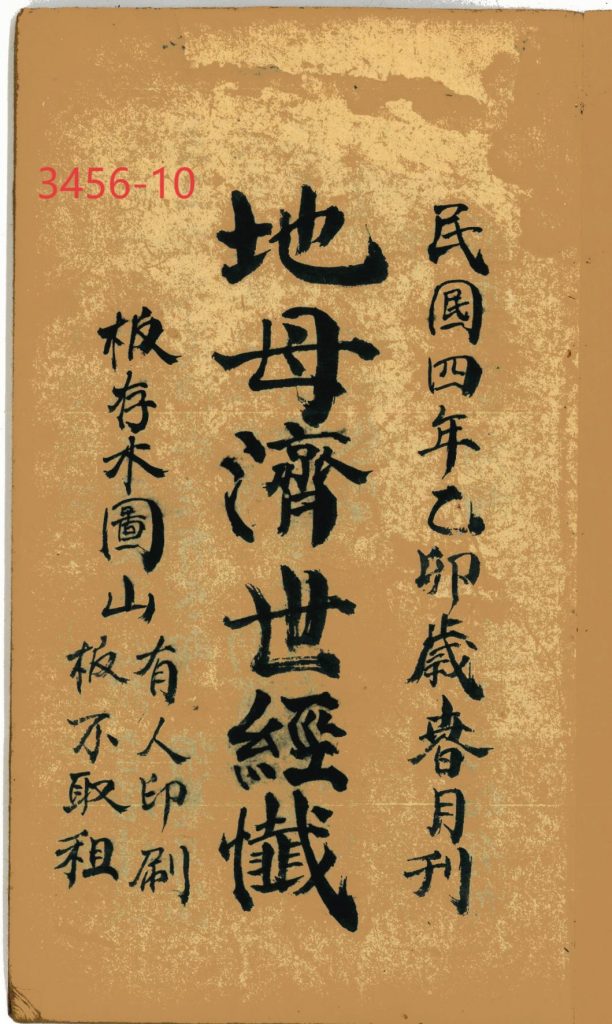 民國四年乙卯歲春月刊
地母濟世經懺
板存木圖山
有人印刷
板不取租
3456-10